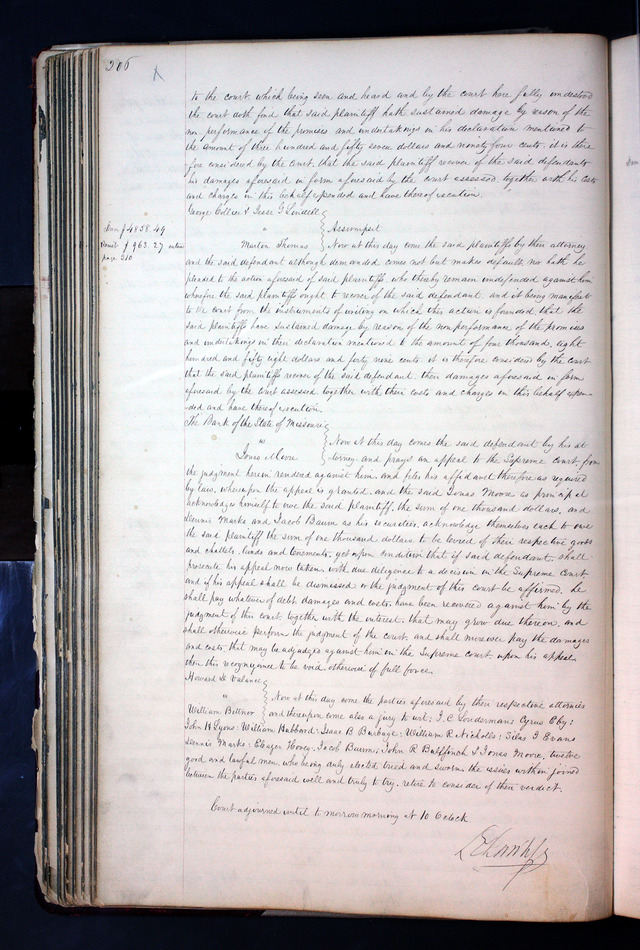 206
to the court, which being seen and heard and by the court here fully understood
the court doth find that said plaintiff hath sustained damage by reason of the
non performance of the promises and undertakings in his declaration mentioned to
the amount of three hundred and fifty seven dollars and ninety four cents. it is there
fore considered by the court, that the said plaintiff recover of the said defendants
his damages aforesaid in form aforesaid by the court assessed together with his costs
and charges in this behalf expended and have thereof execution.
George Collier & Jesse G Lindell
vs Assumpsit
$4858.49
$963.27
page 310
Martin Thomas Now at this day come the said plaintiffs by their attorney
and the said defendant although demanded comes not but makes default, nor hath he
pleaded to the action aforesaid of said plaintiffs, who thereby remain undefended against him
wherefore the said plaintiffs ought to recover of the said defendant. and it being manifest
to the court from the instruments of writing on which this action is founded, that the
said plaintiffs have sustained damage by reason of the non performance of the promises
and undertakings in their declaration mentioned to the amount of four thousand, eight
hundred and fifty eight dollars and forty nine cents. it is therefore considered by the court
that the said plaintiffs recover of the said defendant. their damages aforesaid in form
aforesaid by the court assessed together with their costs and charges in this behalf expen
ded and have thereof execution.
The Bank of the State of Missouri
vs Now at this day comes the said defendant by his at
Jonas Moore torney and prays an appeal to the Supreme court from
the judgment herein rendered against him and files his affidavit therefore as required
by law, whereupon the appeal is granted. and the said Jonas Moore as principal
acknowledges himself to owe the said plaintiff, the sum of one thousand dollars, and
Dennis Marks and Jacob Baum as his securities, acknowledge themselves each to owe
the said plaintiff the sum of one thousand dollars to be levied of their respective goods
and chattels, lands and tenements, yet upon condition that if said defendant, shall
prosecute his appeal now taken, with due diligence to a decision in the Supreme court
and if his appeal shall be dismissed or the judgment of this court be affirmed, he
shall pay whatever of debt, damages and costs have been recovered against him by the
judgment of this court, together with the interest, that may grow due thereon, and
shall otherwise perform the judgment of the court, and shall moreover pay the damages
and costs, that may be adjudged against him in the Supreme court upon his appeal,
then this recognizance to be void, otherwise of full force.
Howard
vs Now at this day come the parties aforesaid by their respective attornies
William Bittner and thereupon come also a jury to wit: Cyrus Eby:
John H Lyons: William Hubbard: Isaac B Burbage: William R Nicholls: Silas J Evans
Dennis Marks: Eleazer Honey: Jacob Baum: John R Bullfinch & Jonas Moore, twelve
good and lawful men, who being duly elected tried and sworn, the issues within joined
between the parties aforesaid well and truly to try, retire to consider of their verdict.
Court adjourned until to morrow morning at 10 Oclock